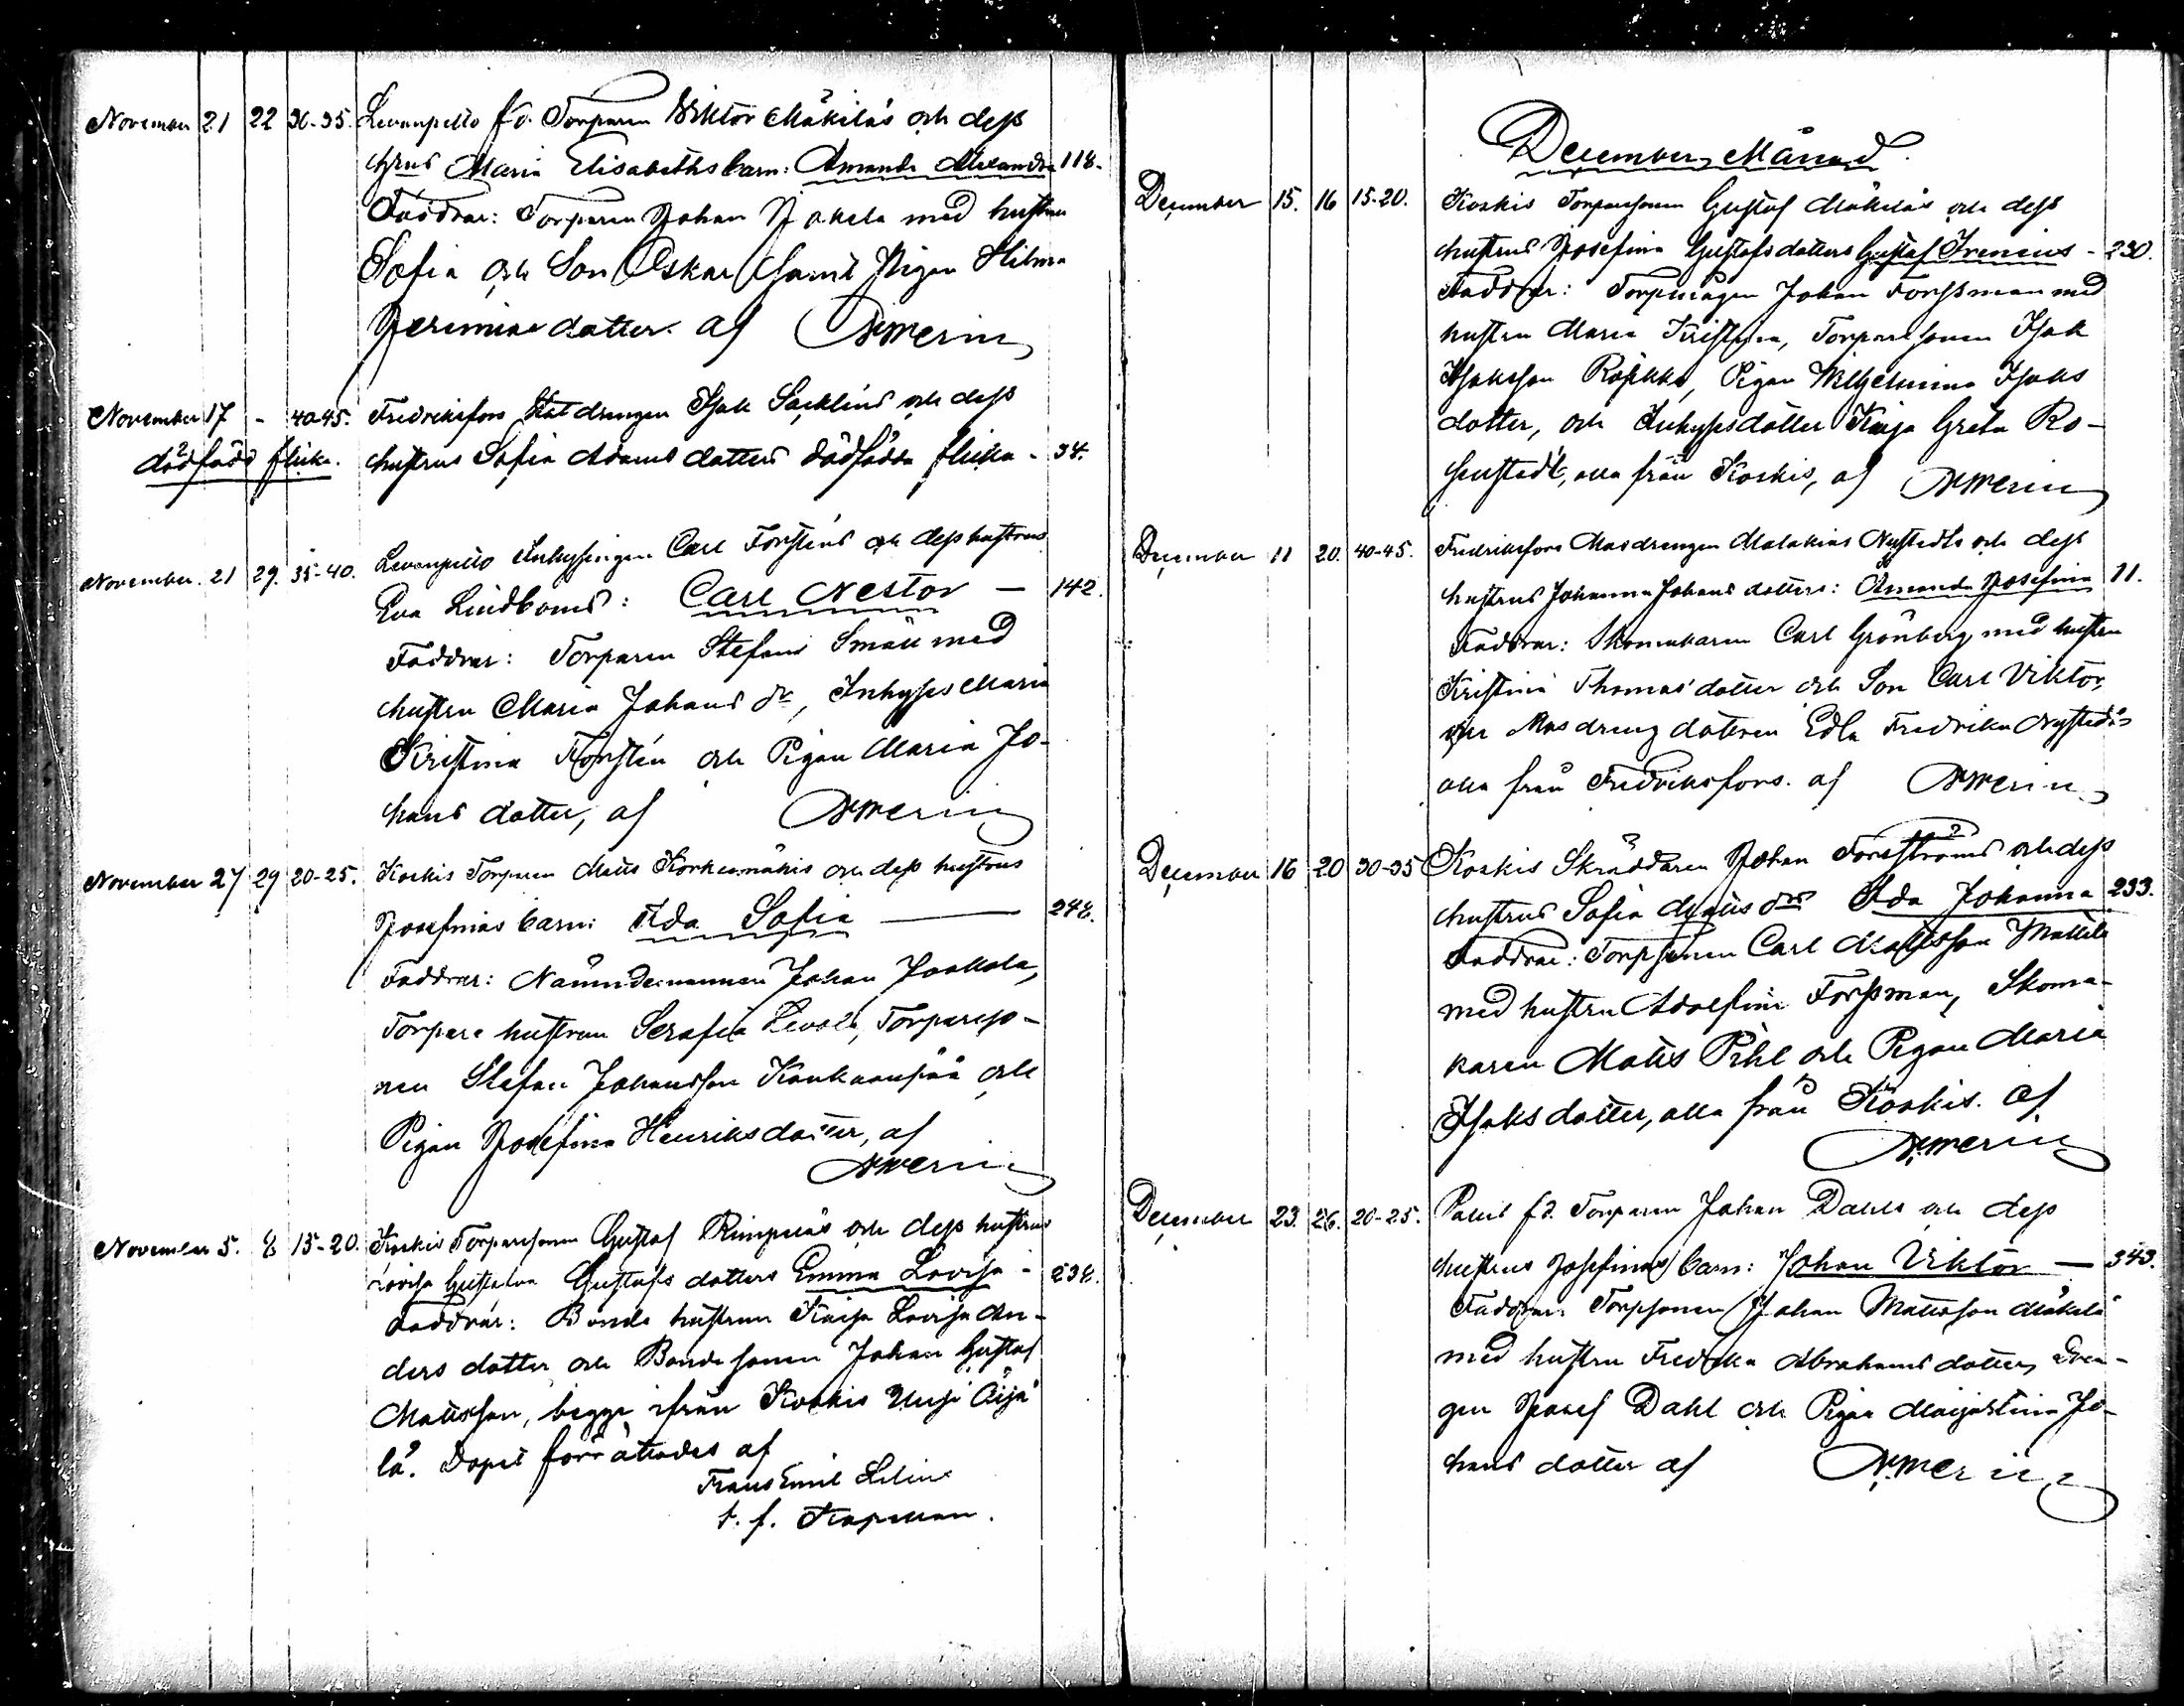 November 21 22 30-35. Levanpelto fd. Torparen Viktor Mäkiläs och dess
hustrus Maria Elisabeths barn: Amanda Alexandra 118.
Faddrar: Torparen Johan Jokela med hustru
Sofia och Son Oskar samt Pigan Hilma
Jeremiae dotter. af
November 17 - 40-45. Fredriksfors Stat drengen Isak Säcklins och dess
dödfödd flicka. hustrus Sofia Adams dotters dödfödda flicka - 34.
November. 21 29. 35-40. Levanpelto Inhysingen Carl Forsténs och dess hustrus
Eva Lindboms: Carl Nestor — 142.
Faddrar: Torparen Stefans Småll med
hustru Maria Johans dr, Inhyses Maria
Kristina Forstén och Pigan Maria Jo-
hans dotter, af
November 27 29 20-25. Koskis Torparen Matts Korkeamäkis och dess hustrus
Josefinas barn: Ida Sofia — 248.
Faddrar: Nämndemannen Johan Jookala,
Torpare hustrun Serafia Levola, Torpareso-
nen Stefan Johansson Kankaanpää och
Pigan Josefina Henriksdotter, af
November 5. 8 15-20. Koskis Torparesonen Gustaf Rimpiläs och dess hustrus
Lovisa Gustava Gustafs dotters Emma Lovisa - 238.
Faddrar: Bonde hustrun Kaisa Lovisa An-
ders dotter och Bonde sonen Johan Gustaf
Mattsson, begge ifrån Koskis Uusi Äijä
lä. Dopet förrättades af
Frans Emil Lilius
t. f. Kapellan.
December Månad.
December 15. 16 15-20. Koskis Torparesonen Gustaf Mäkiläs och dess
hustrus Josefina Gustafsdotters Gustaf Ireneius - 230.
Faddrar: Torpmågen Johan Forssman med
hustru Maria Kristina, Torparesonen Isak
Isaksson Röpikkö, Pigan Wilhelmina Isaks
dotter, och Inhysesdotter Kaisa Greta Ro-
senstedt, alla från Koskis, af
December 11 20. 40-45. Fredriksfors Masdrengen Malakias Nystedts och dess
hustrus Johanna Johans dotters: Amanda Josefina 11.
Faddrar: Skomakaren Carl Grönberg med hustru
Kristina Thomas dotter och Son Carl Viktor,
Masdreng dottren Edla Fredrika Nystedt
alla från Fredriksfors. af
December 16 20 30-35 Koskis Skräddaren Johan Forsströms och dess
hustrus Sofia Matts drs Ida Johanna 233.
Faddrar: Torpsonen Carl Mattsson Mattila
med hustru Adolfina Forssman, Skoma-
karen Matts Pihl och Pigan Maria
Isaksdotter, alla från Koskis. af
December 23. 26. 20-25. fd. Torparen Johan Dahls och dess
hustrus Josefinas barn: Johan Viktor — 343.
Faddrar: Torpsonen Johan Mattsson Mäkelä
med hustru Fredrika Abrahams dotter, Dren-
gen Josef Dahl och Pigan Maijastina Jo-
hans dotter af